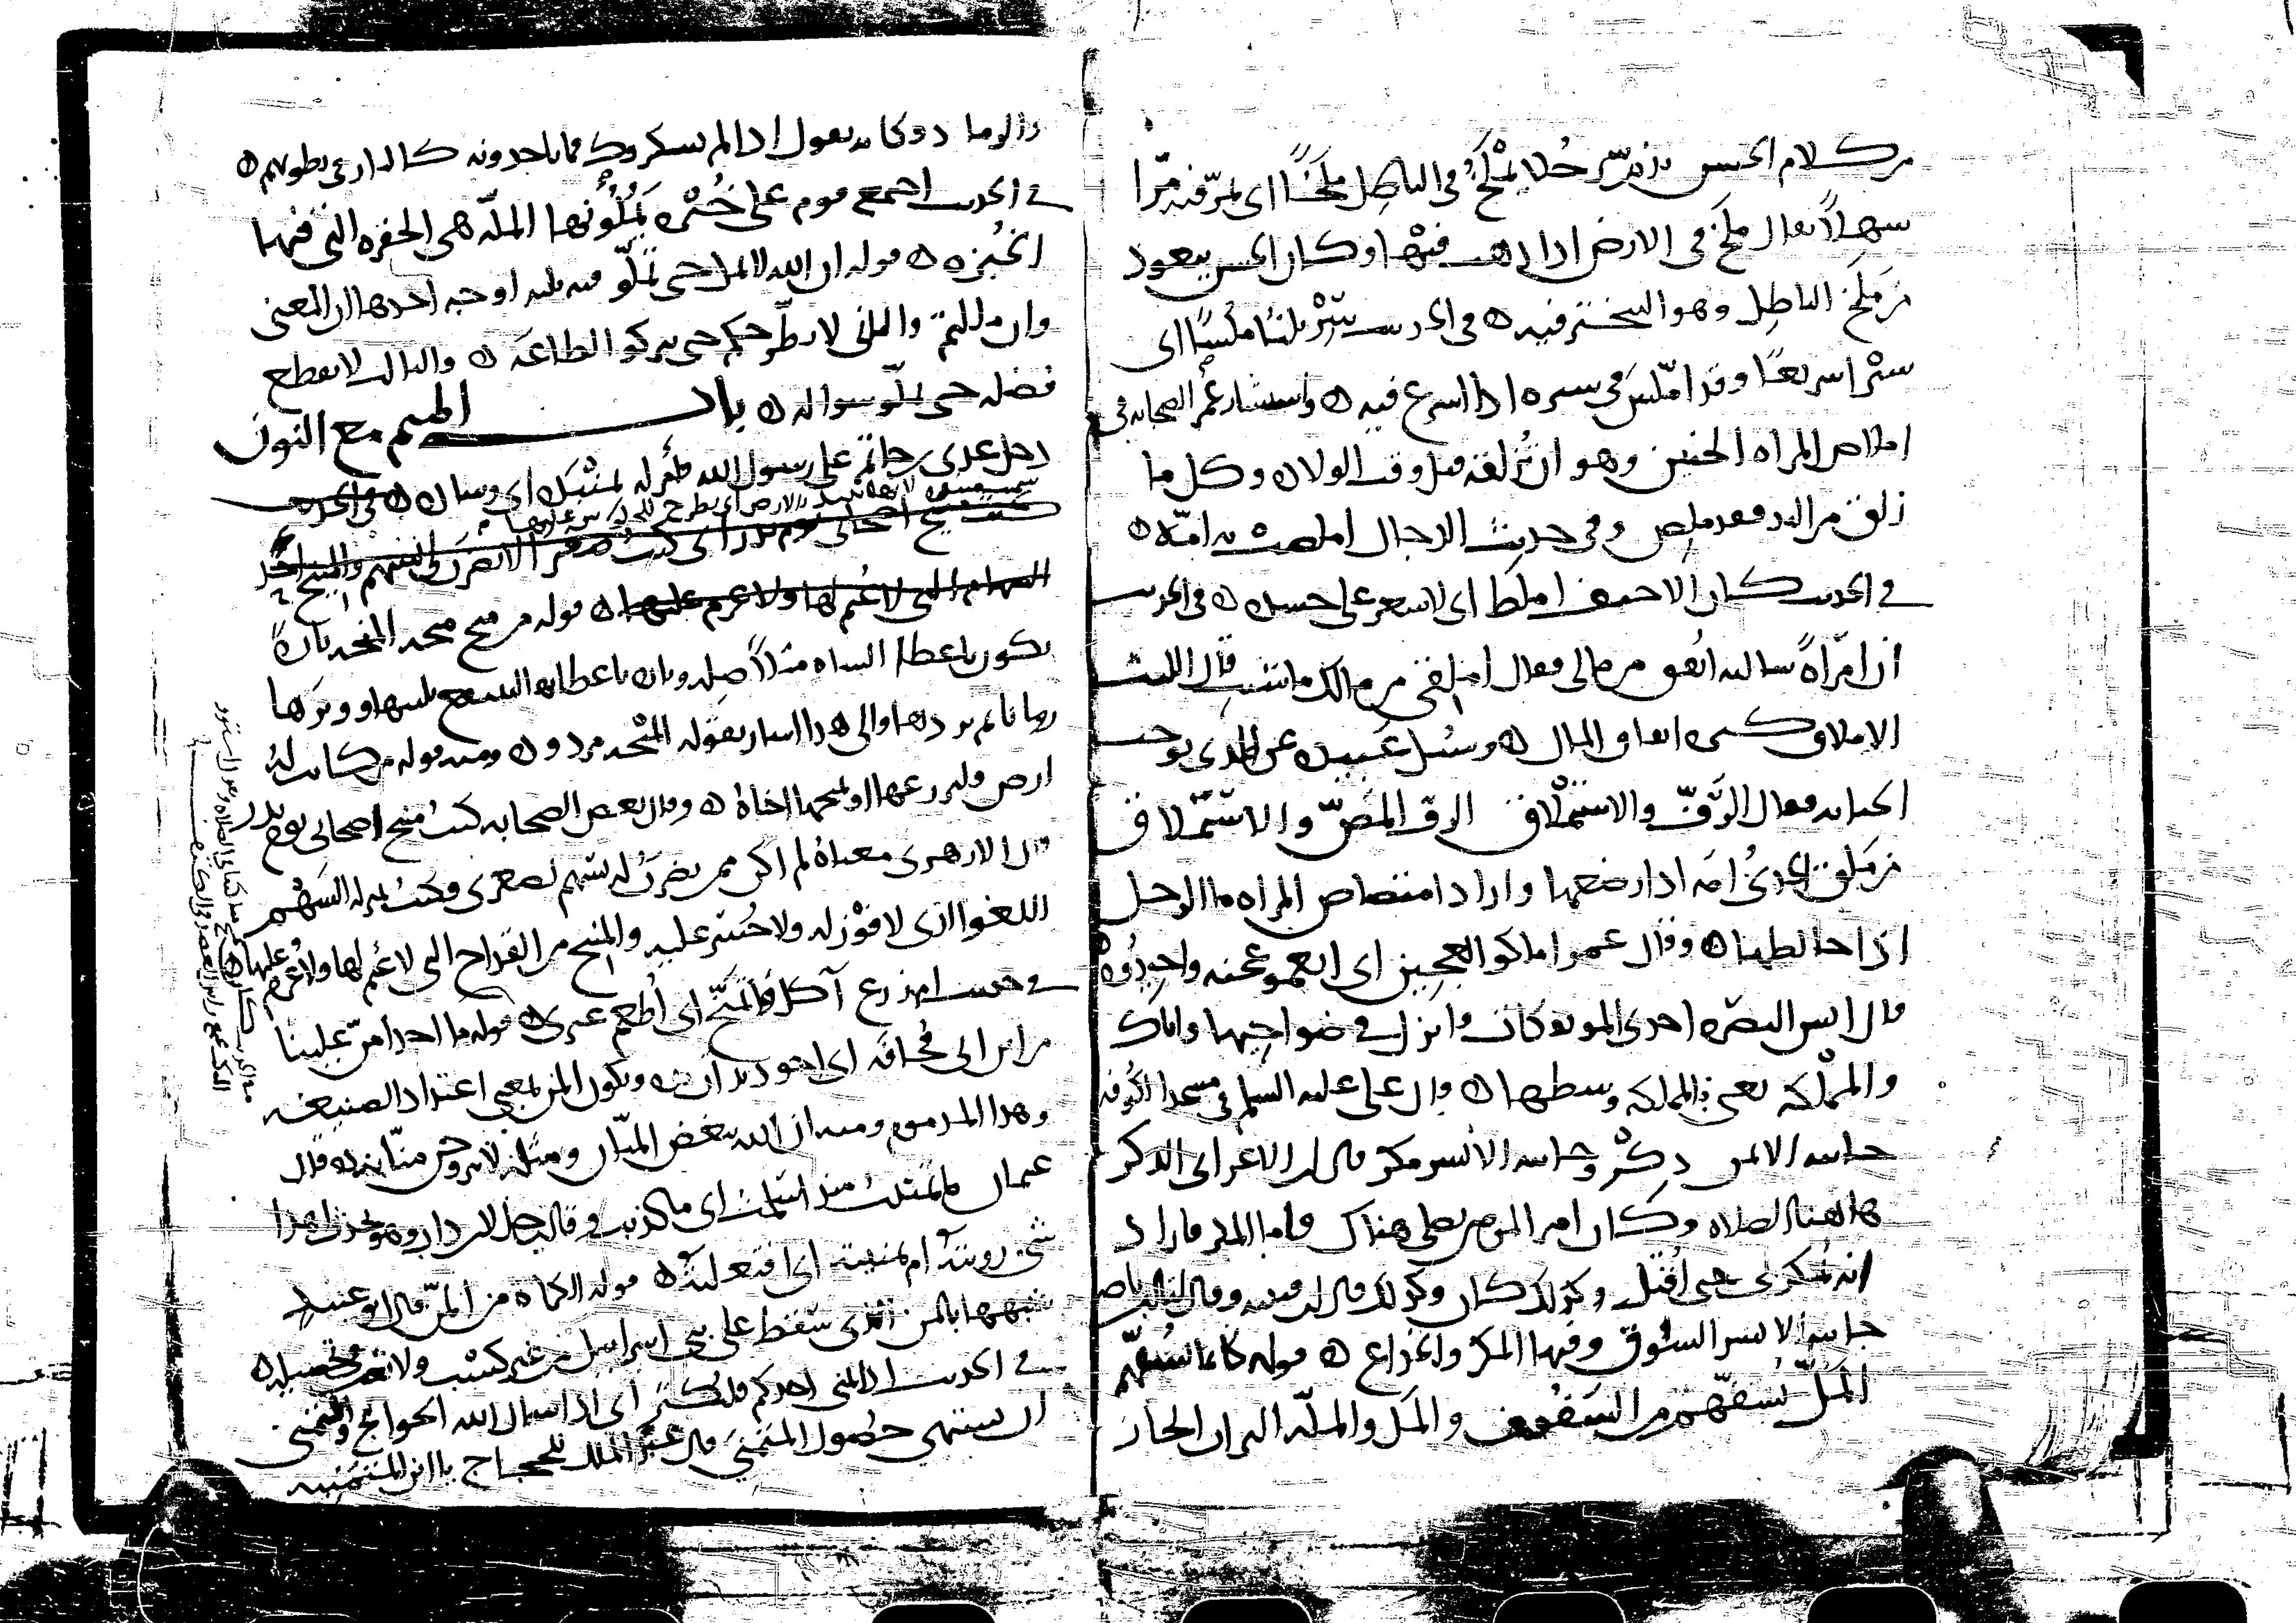 من كلام الحسن يذم رجلا يملخ في الباطل ملخا اي يمر فيه مرا
سهلا يقال ملخ في الارض اذا ذهب فيها وكان الحسن يتعوذ
من ملخ الباطل وهو التبختر فيه ه في الحديث سير ثلثا ملسا اي
سيرا سريعا وقد املس في سيره اذا اسرع فيه ه واستشار عمر الصحابه في
املاص المراه الجنين وهو ان تزلقه قبل وقت الولاده وكل ما
زلق من اليد فقد ملص وفي حديث الدجال املصت به امه ه
في الحديث كان الاحنف املط اي لا شعر على جسده ه في الحديث
ان امراة سالته انفق من مالي فقال املقي من مالك ما شئت قال الليث
الاملاق كثره انفاق المال ه وسئل عبيده عن الذي يوجب
الجنابه فقال الرف والاستملاق الرف المص والاستملاق
من ملق الجدي امه اذا رضعها واراد امتصاص المراه ماء الرجل
اذا خالطها ه وقال عمر املكوا العجين اي انعموا عجنه واجيدوه ه
قال انس البصره احدى الموتفكات فانزل في ضواحيها واياك
والمملكه يعني بالمملكه وسطها ه قال علي عليه السلم في مسجد الكوفه
جانبه الايمن ذكر وجانبه الايسر مكر قال ابن الاعرابي الذكر
هاهنا الصلاه وكان امير المومنين يصلي هناك واما المكر فاراد
انه يمكر بي حتى اقتل وكذلك كان وكذلك قال ابن قتيبه وقال
جانبه الايسر السوق وفيها المكر والخداع ه قوله كانما تسفهم
المل تسفهم من السفوف والمل والمله التراب الحار
والرماد وكانه يقول اذا لم يشكروك فما ياخذونه كالنار في بطونهم ه
في الحديث اجتمع قوم على خبزه يملونها المله هي الحفره التي فيها
الخبزه ه قوله ان الله لا يمل حتى تملو فيه ثلثه اوجه احدها ان المعنى
وان مللتم والثاني لا يطرحكم حتى يتركوا الطاعه ه والثالث لا يقطع
فضله حتى تملوا سواله ه باب الميم مع النون
دخل عدي بن حاتم على رسول الله فامر له بمنبذتين اي وسادتين ه في الحديث
كنت منيح اصحابي يوم بدر اي كنت صغيرا لا يضرب لي بسهم والمنيح احد
السهام التي لا غنم لها ولا غرم عليها ه قوله من منح منحه المنحه تارة
يكون باعطاء الشاه مثلا صله وتاره باعطائها لينتفع بلبنها ووبرها
زمانا ثم يردها والى هذا اشار بقوله المنحه مردوده ومنه قوله من كانت له
ارض فليزرعها او ليمنحها اخاه ه وقال بعض الصحابه كنت منيح اصحابي يوم بدر
قال الازهري معناه لم اكن ممن يضرب له بسهم لصغري فكنت بمنزله السهم
اللغو الذي لا فوز له ولا خسر عليه والمنيح من القداح التي لا غنم لها ولا غرم عليها ه
في حديث ام زرع آكل فاتمنح اي اطعم غيري ه قوله ما احد امن علينا
من ابن ابي قحافه اي اجود بذات يده ويكون المن بمعنى اعتداد الصنيعه
وهذا المذموم ومنه ان الله يبغض المنان ومثله لا تتزوجن منانه ه قال
عثمان ما تمنيت منذ اسلمت اي ما كذبت وقال رجل لابن داب وهو يحدث اهذا
شي رويته ام تمنيته اي افتعلته ه قوله الكماه من المن قال ابو عبيد
شبهها بالمن الذي سقط على بني اسرائيل من غير كسب ولا تحصيله ه
في الحديث اذا تمنى احدكم فليكثر اي اذا سال الله الحوائج والتمني
ان يشتهي حصول المتمني قال عبد الملك للحجاج يا ابن المتمنيه